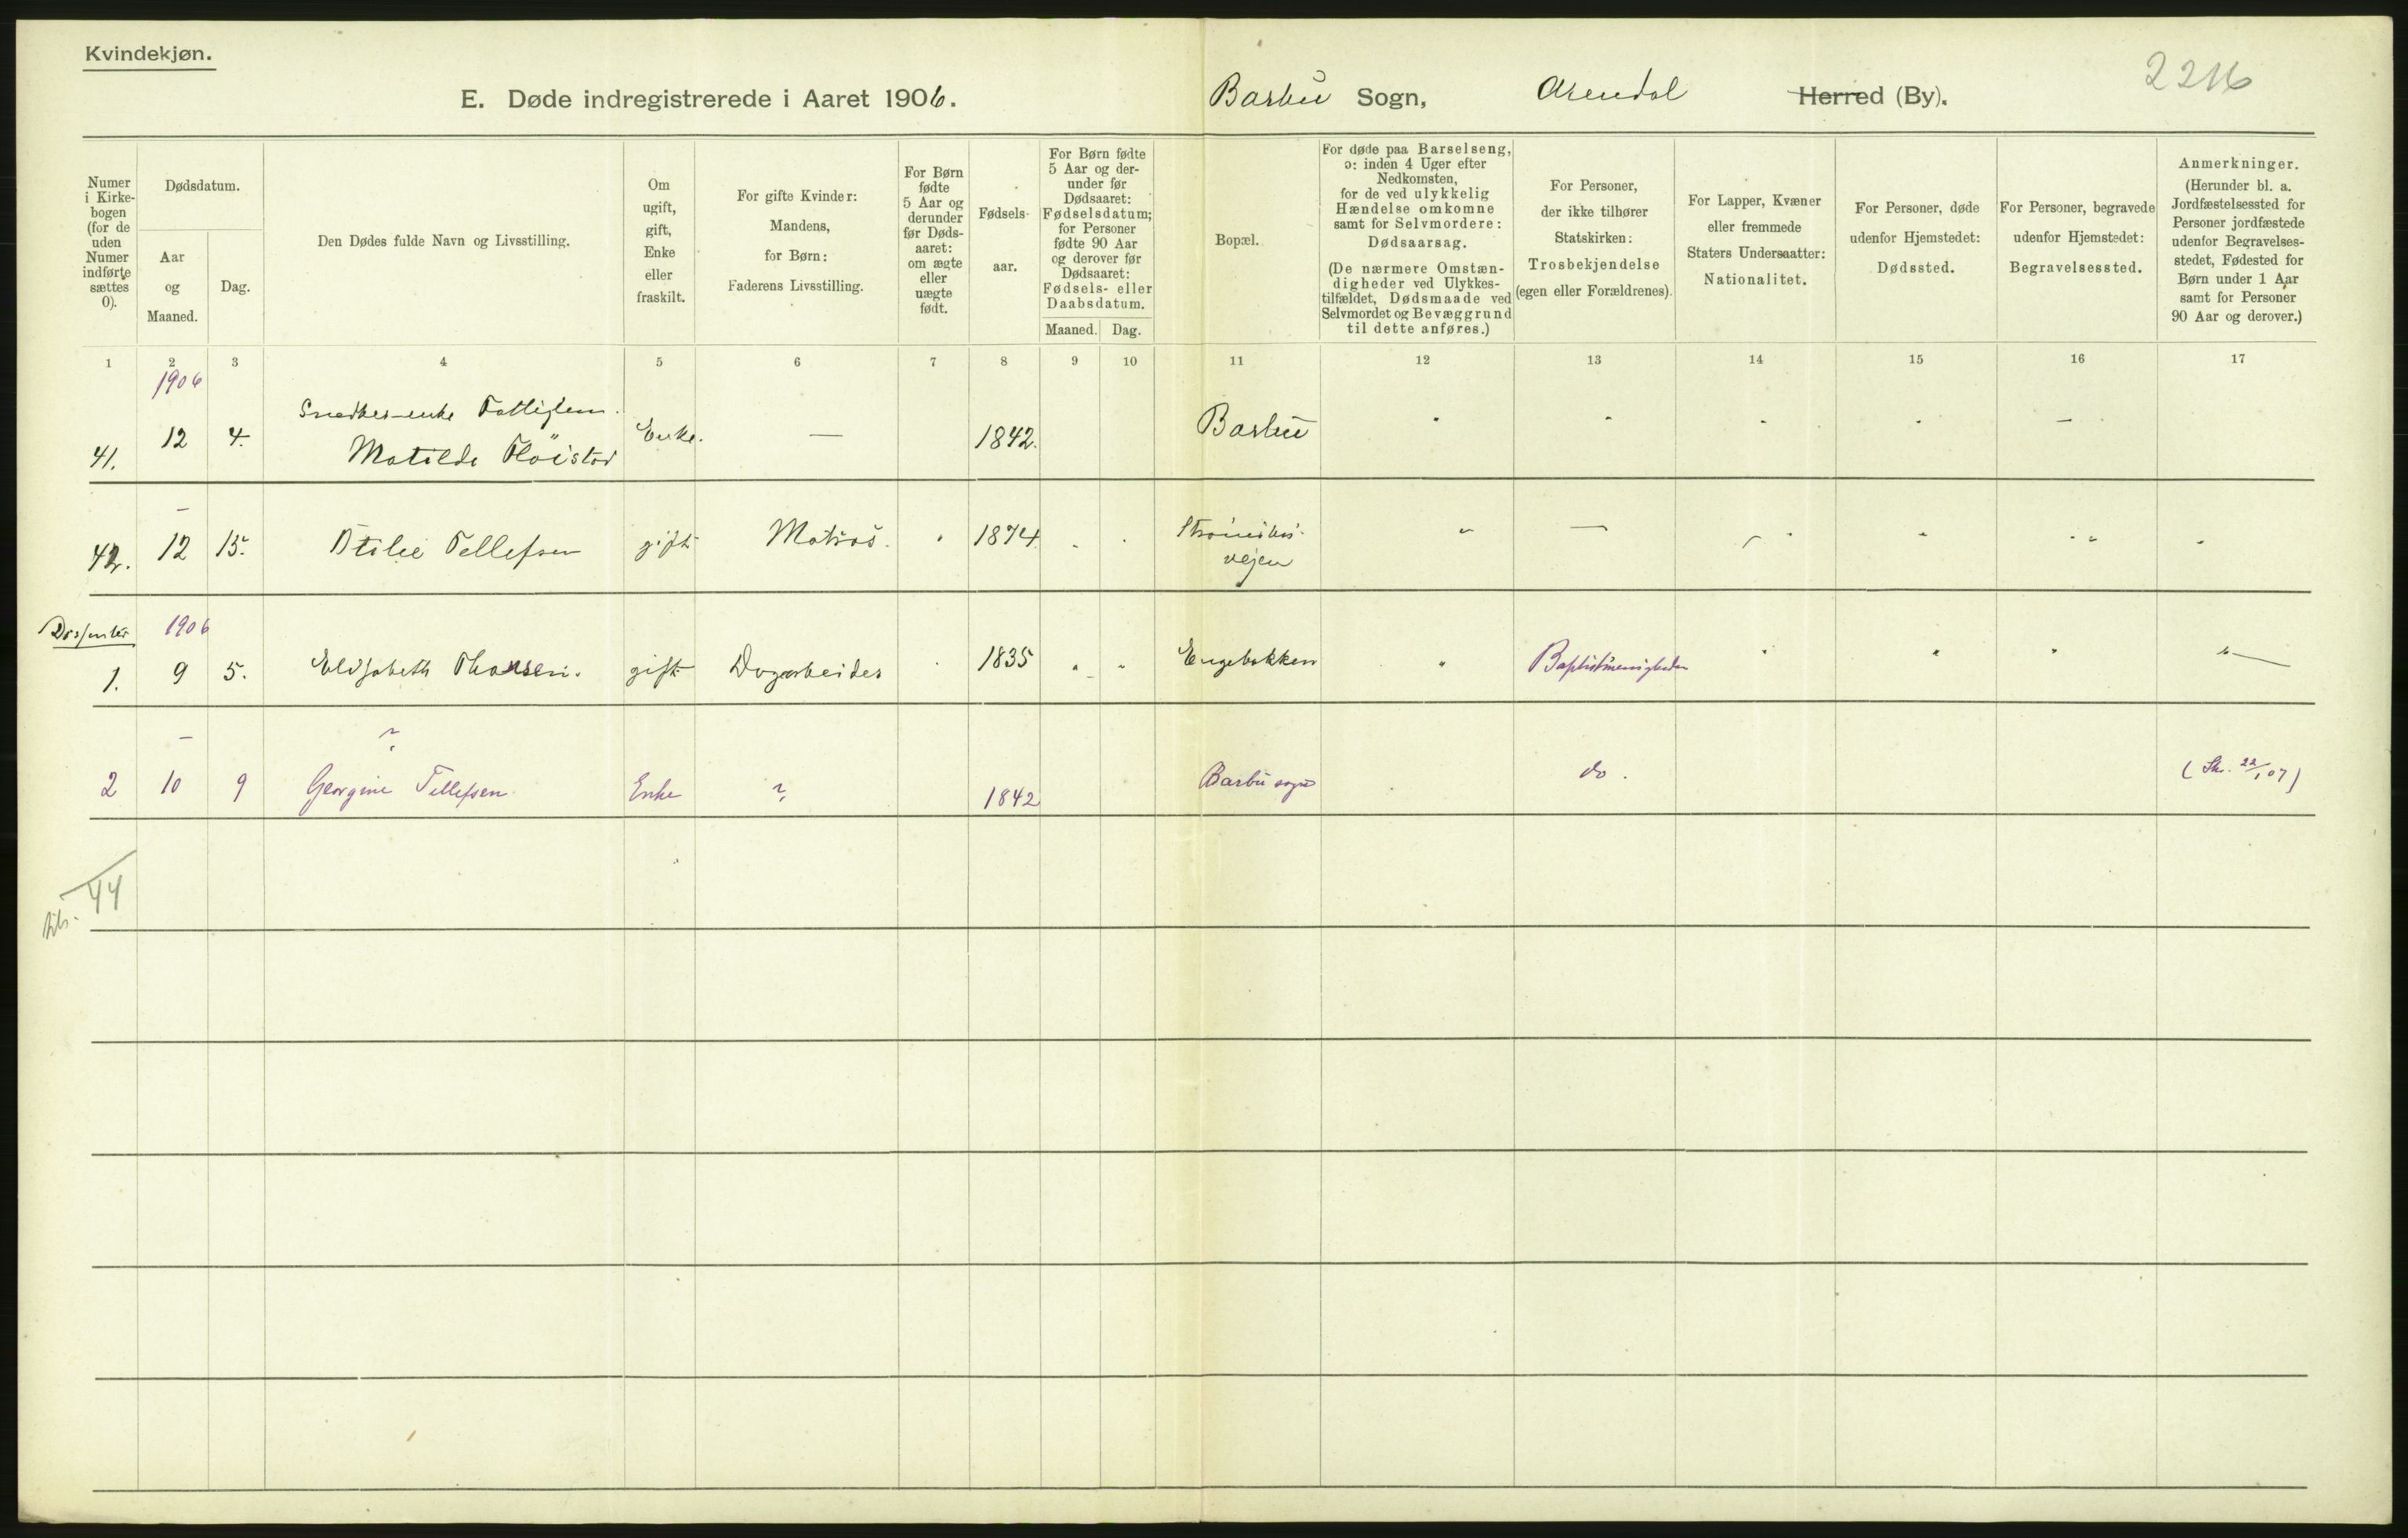 Kvindekjøn.
E. Døde indregistrerede i Aaret 1906.
Barbu Sogn, Arendal Herred (By).
2216
Numer i Kirke- bogen (for de uden Numer indførte sættes 0).
Dødsdatum.
Aar og Maaned.
Dag.
Den Dødes fulde Navn og Livsstilling.
Om ugift, gift, Enke eller fraskilt.
For gifte Kvinder: Mandens, for Børn: Faderens Livsstilling.
For Børn fødte 5 Aar og derunder før Døds- aaret: om ægte eller uægte født.
Fødsels- aar.
For Børn fødte 5 Aar og der- under før Dødsaaret: Fødselsdatum; for Personer fødte 90 Aar og derover før Dødsaaret: Fødsels- eller Daabsdatum.
Maaned. Dag.
Bopæl.
For døde paa Barselseng, ɔ: inden 4 Uger efter Nedkomsten, for de ved ulykkelig Hændelse omkomne samt for Selvmordere: Dødsaarsag.
(De nærmere Omstæn- digheder ved Ulykkes- tilfældet, Dødsmaade ved Selvmordet og Bevæggrund til dette anføres.)
For Personer, der ikke tilhører Statskirken: Trosbekjendelse (egen eller Forældrenes).
For Lapper, Kvæner eller fremmede Staters Undersaatter: Nationalitet.
For Personer, døde udenfor Hjemstedet: Dødssted.
For Personer, begravede udenfor Hjemstedet: Begravelsessted.
Anmerkninger.
(Herunder bl. a. Jordfæstelsessted for Personer jordfæstede udenfor Begravelses- stedet, Fødested for Børn under 1 Aar samt for Personer 90 Aar og derover.)
1 2 3 4 5 6 7 8 9 10 11 12 13 14 15 16 17
1906
Snedker-enke Fattiglem.
41. 12 4. Matilde Fløistad Enke. — 1842. Barbu —
42. 12 15. Otilie Tellefsen gift Matros. 1874. Strømsbu- vejen
Dissenter 1906
1. 9 5. Elisabeth Thorsen. gift Dagarbeider 1835 Engebakken Baptistmenigheden
2 10 9 Georgine Tellefsen Enke ? 1842 Barbu sogn do. (Skr. 22/1 07)
44